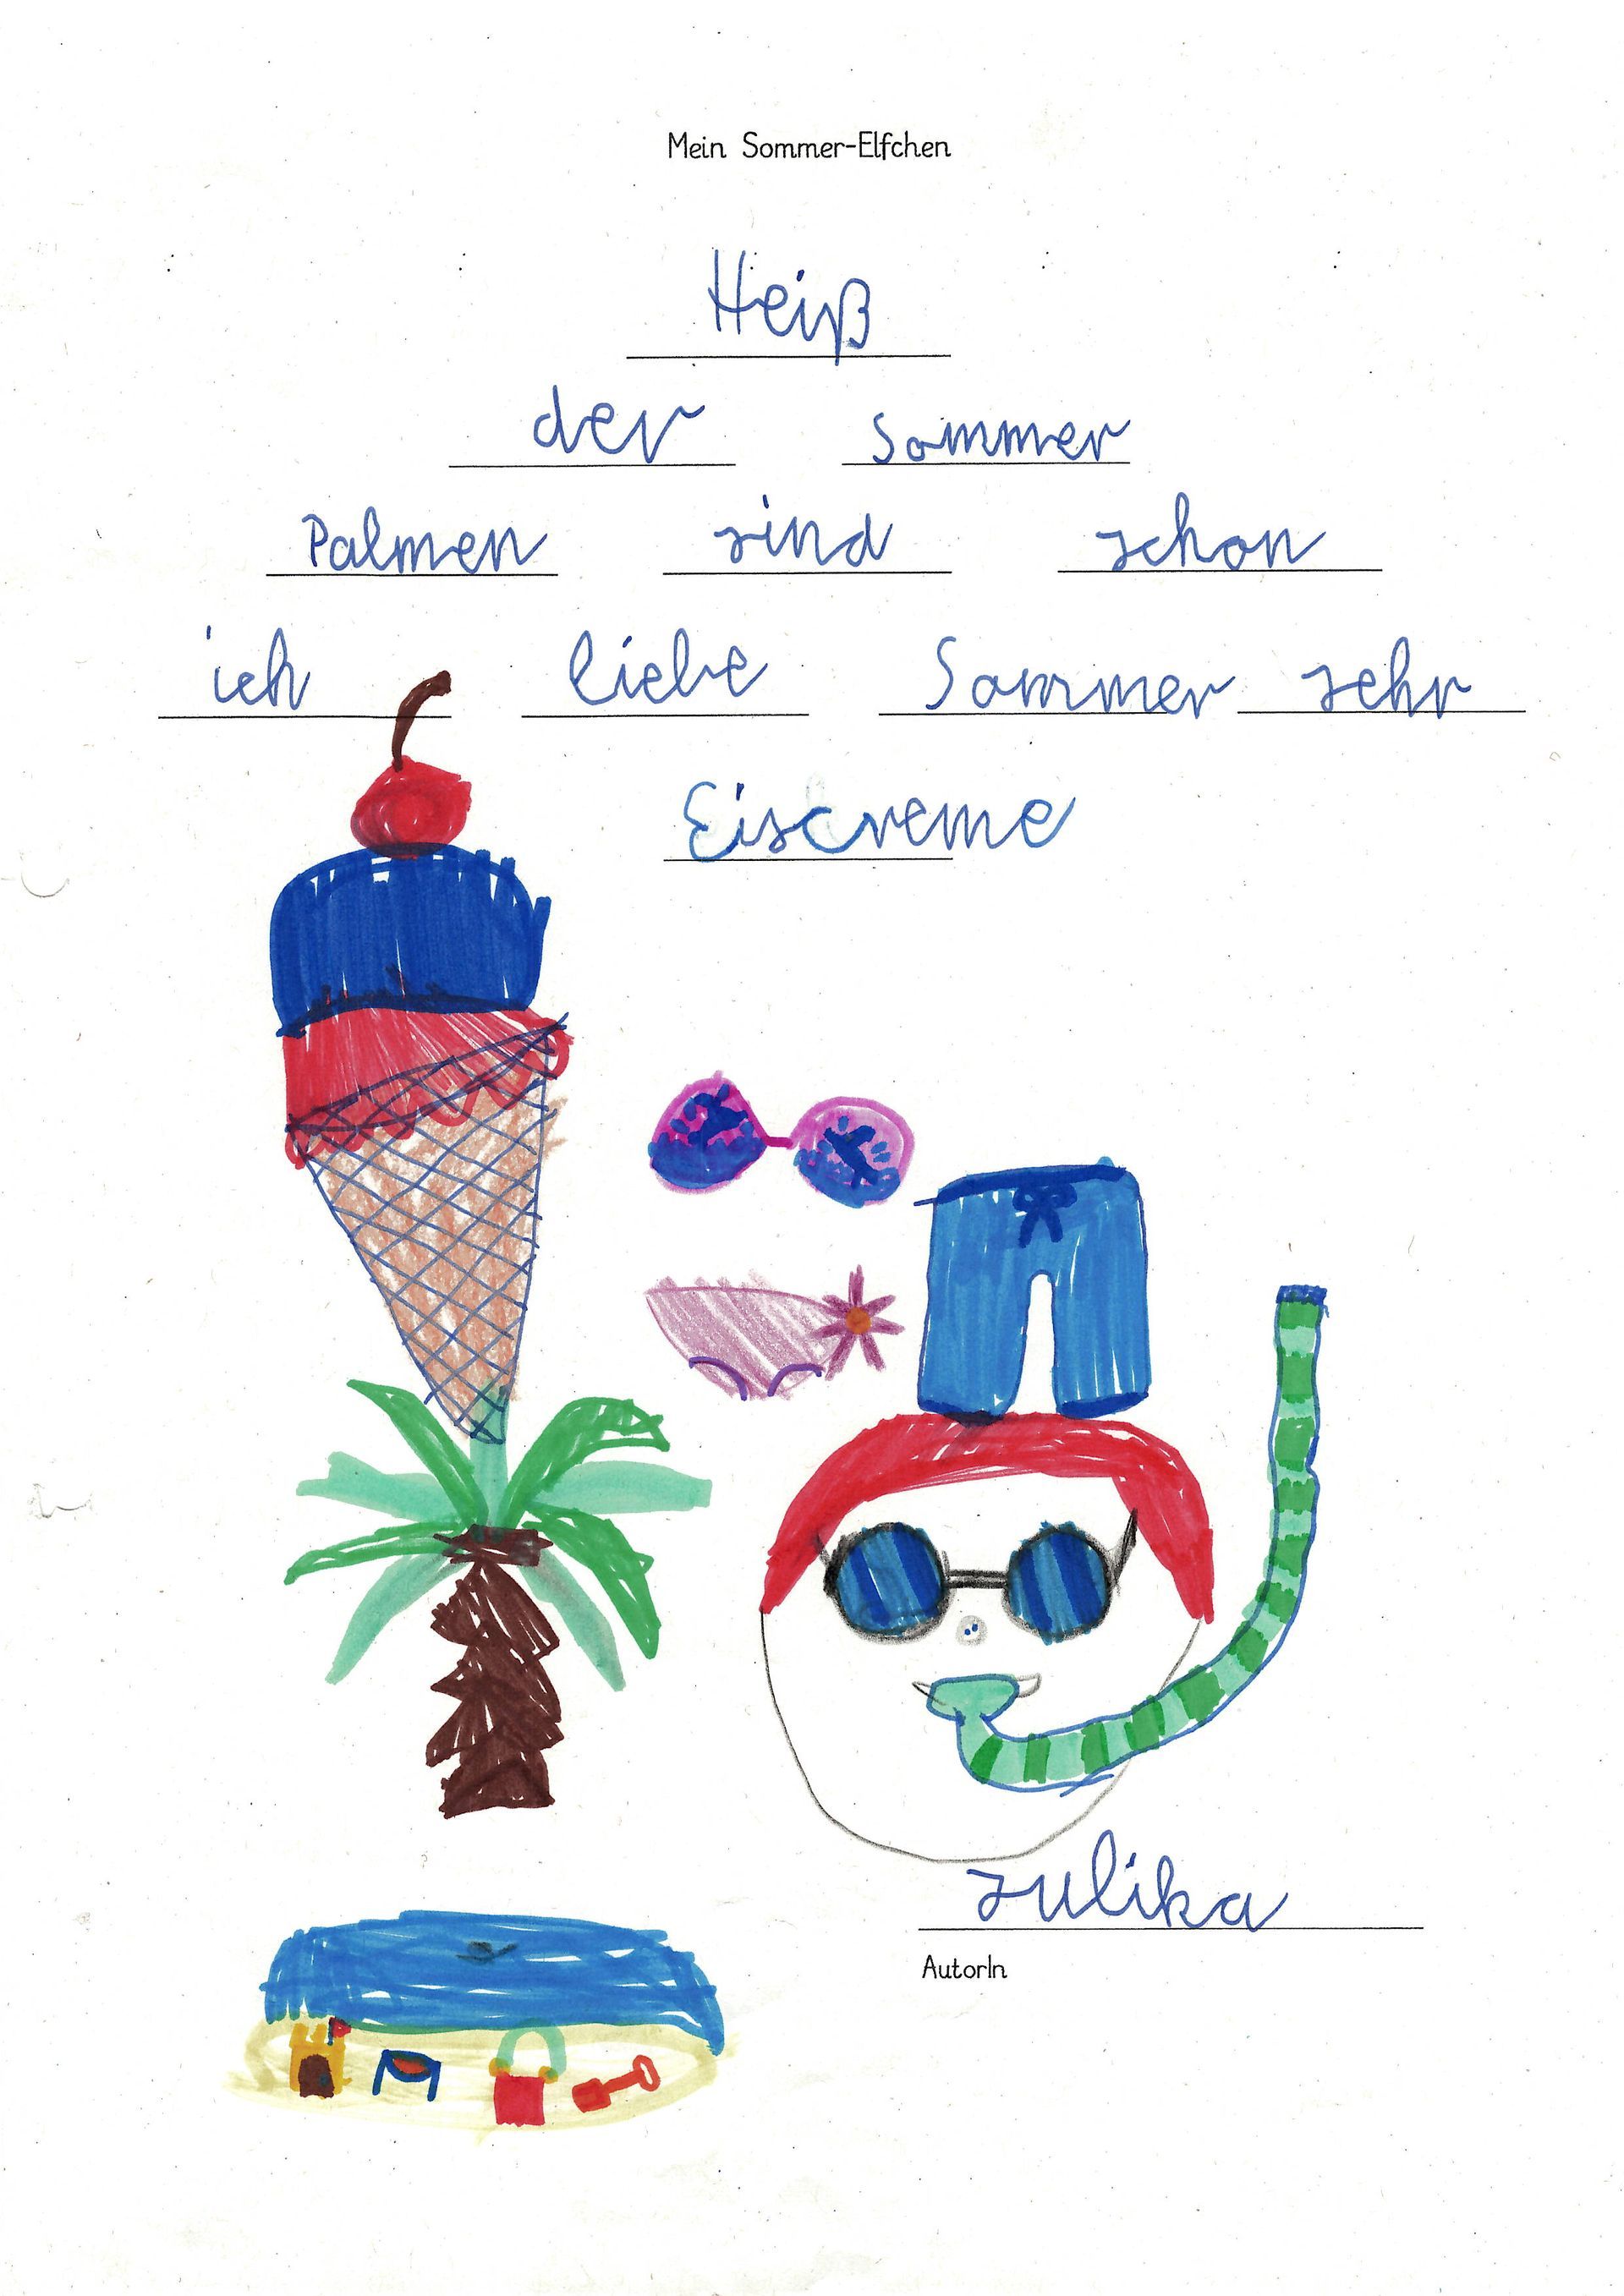 Mein Sommer-Elfchen
Heiß
der Sommer
Palmen sind schon
ich liebe Sommer sehr
Eiscreme
Julika
AutorIn